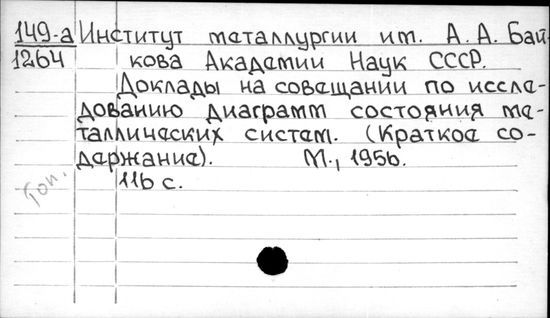 149-а Институт металлургии им. А. А. Бай-
1264 кова Академии Наук СССР.
Доклады на совещании по иссле-
дованию диаграмм состояния ме-
таллических систем. (Краткое со-
держание). М., 1956.
116 с.
Гоп.